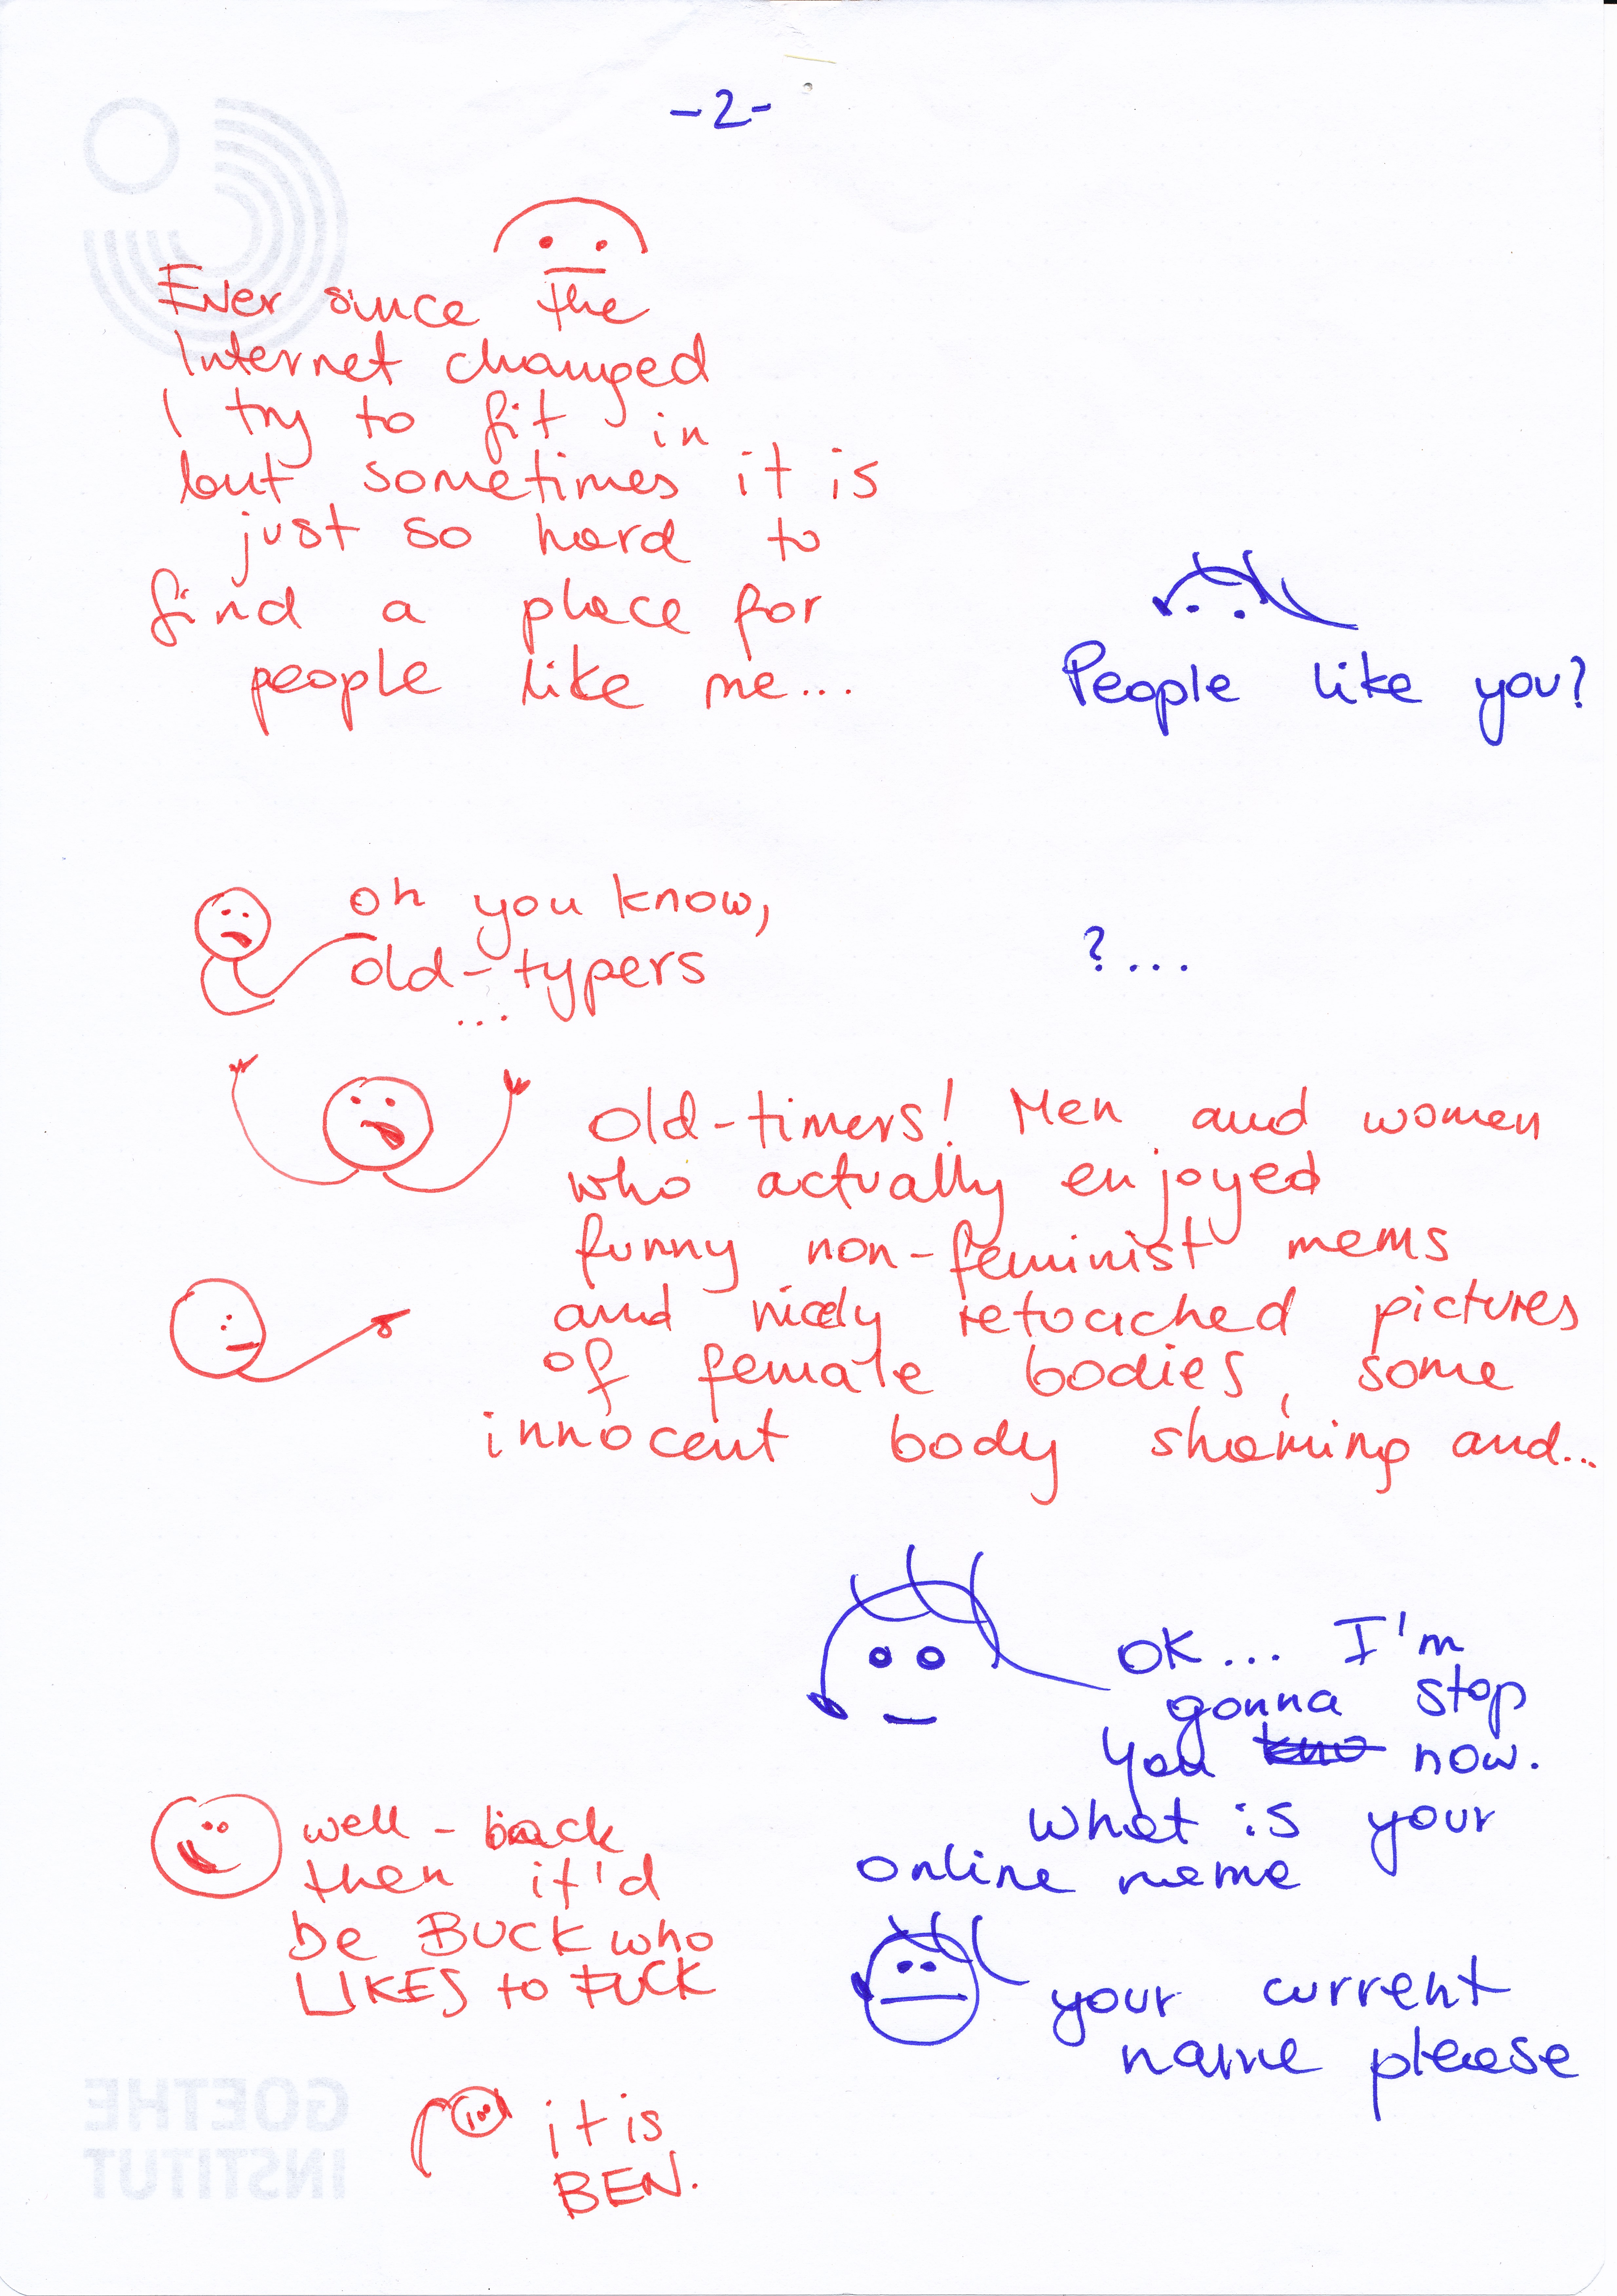 -2-
Ever since the
Internet changed
I try to fit in
but sometimes it is
just so hard to
find a place for
people like me...
People like you?
oh you know,
old-typers
...
?...
Old-timers! Men and women
who actually enjoyed
funny non-feminist mems
and nicely retouched pictures
of female bodies, some
innocent body shaming and...
OK... I'm
gonna stop
you kno now.
what is your
online name
well - back
then it'd
be BUCK who
LIKES to FUCK
your current
name please
it is
BEN.
GOETHE
INSTITUT